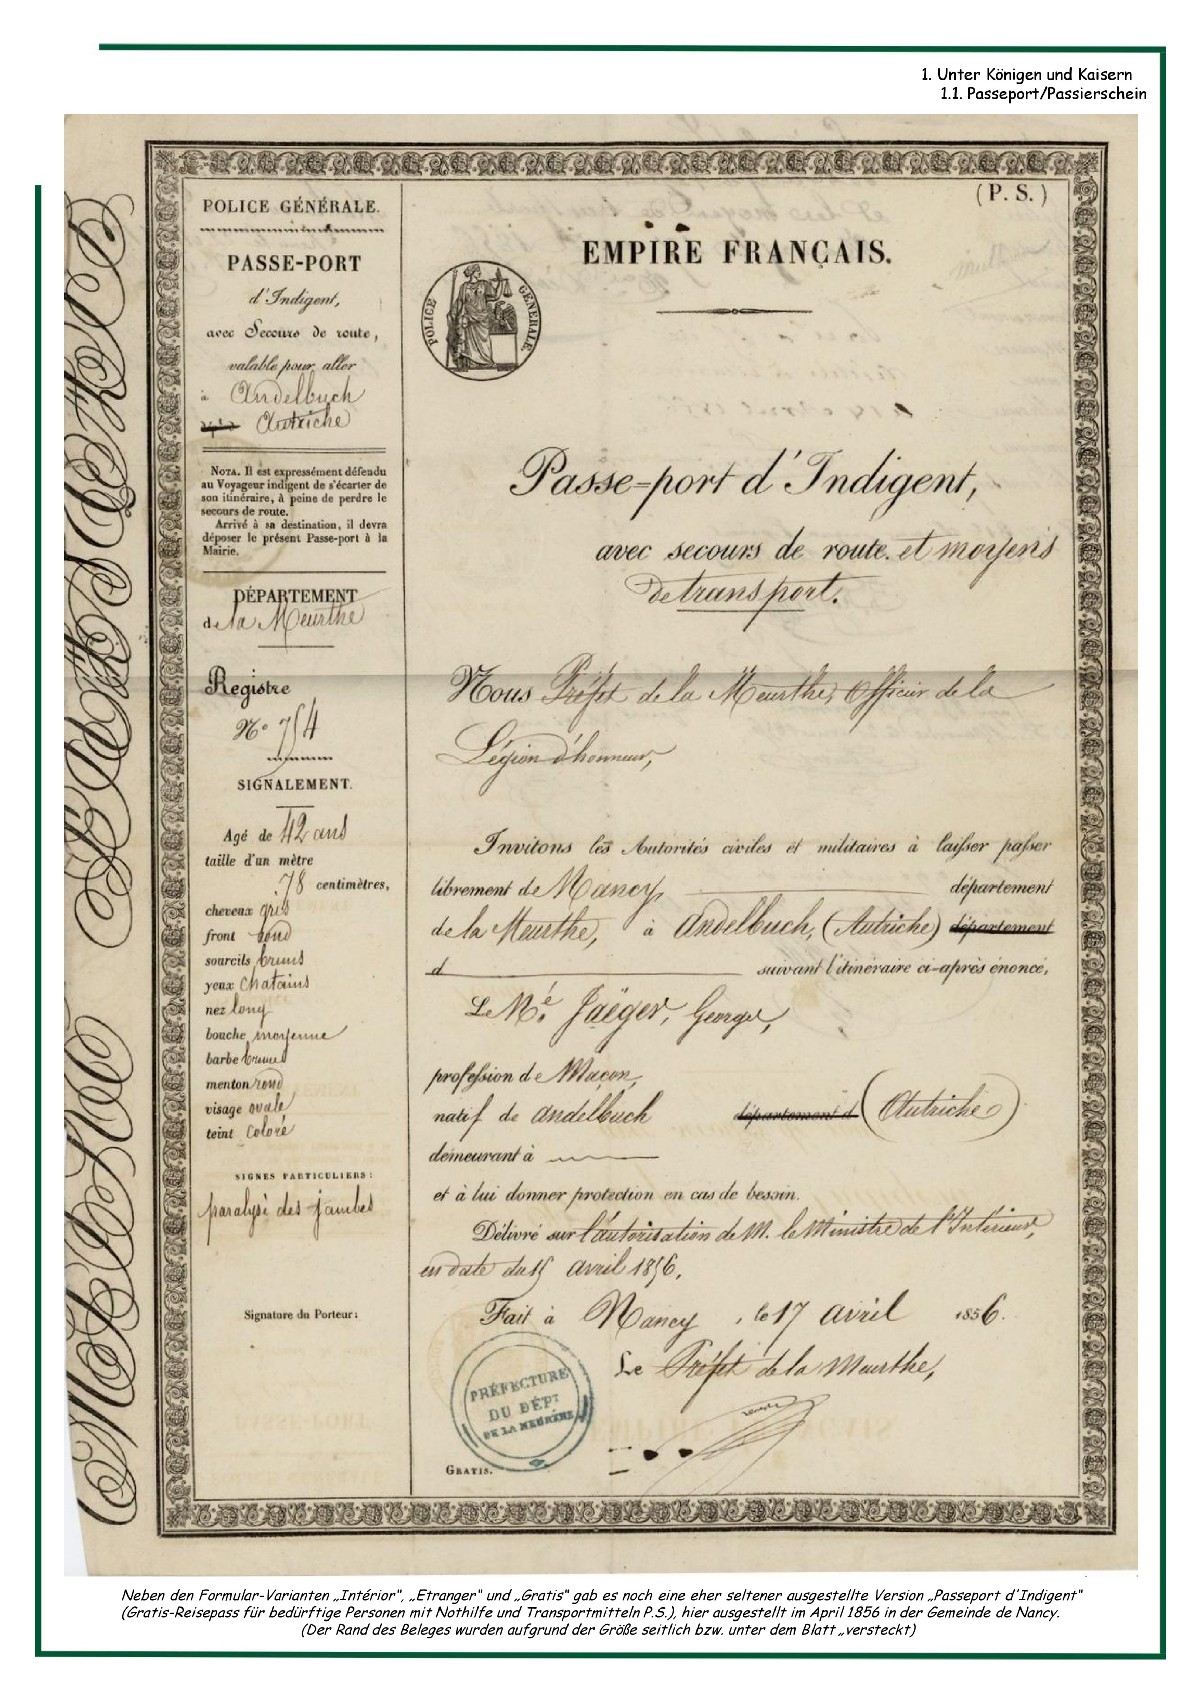 1. Unter Königen und Kaisern
1.1. Passeport/Passierschein
POLICE GÉNÉRALE.
PASSE-PORT
d'Indigent,
avec Secours de route,
valable pour aller
à Andelbuch
Autriche
NOTA. Il est expressément défendu
au Voyageur indigent de s'écarter de
son itinéraire, à peine de perdre le
secours de route.
Arrivé à sa destination, il devra
déposer le présent Passe-port à la
Mairie.
DÉPARTEMENT
de la Meurthe
Registre
N° 754
SIGNALEMENT.
Agé de 42 ans
taille d'un mètre
78 centimètres,
cheveux gris
front rond
sourcils bruns
yeux chatains
nez long
bouche moyenne
barbe brune
menton rond
visage ovale
teint coloré
SIGNES PARTICULIERS:
paralysé des jambes
Signature du Porteur:
(P. S.)
EMPIRE FRANÇAIS.
POLICE GÉNÉRALE.
Passe-port d'Indigent,
avec secours de route et moyens
de transport.
Nous Préfet de la Meurthe, officier de la
Légion d'honneur,
Invitons les Autorités civiles et militaires à laisser passer
librement de Nancy, département
de la Meurthe, à Andelbuch, (Autriche) département
d suivant l'itinéraire ci-après énoncé,
Le Mé. Jaëger, George,
profession de Maçon,
natif de andelbuch département d (Autriche)
demeurant à
et à lui donner protection en cas de besoin.
Délivré sur l'autorisation de M. le Ministre de l'Intérieur,
en date du 15 avril 1856.
Fait à Nancy, le 17 avril 1856.
Le Préfet de la Meurthe,
PRÉFECTURE
DU DÉPT
DE LA MEURTHE
GRATIS.
Neben den Formular-Varianten „Intérior", „Etranger" und „Gratis" gab es noch eine eher seltener ausgestellte Version „Passeport d'Indigent"
(Gratis-Reisepass für bedürftige Personen mit Nothilfe und Transportmitteln P.S.), hier ausgestellt im April 1856 in der Gemeinde de Nancy.
(Der Rand des Beleges wurden aufgrund der Größe seitlich bzw. unter dem Blatt „versteckt)